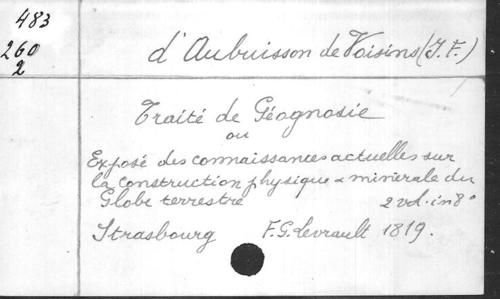 483
260
2
d'Aubuisson de Voisins (J. F.)
Traité de Géognosie
ou
Exposé des connaissances actuelles sur
la construction physique & minérale du
Globe terrestre 2 vol. in 8°
Strasbourg F. G. Levrault 1819.